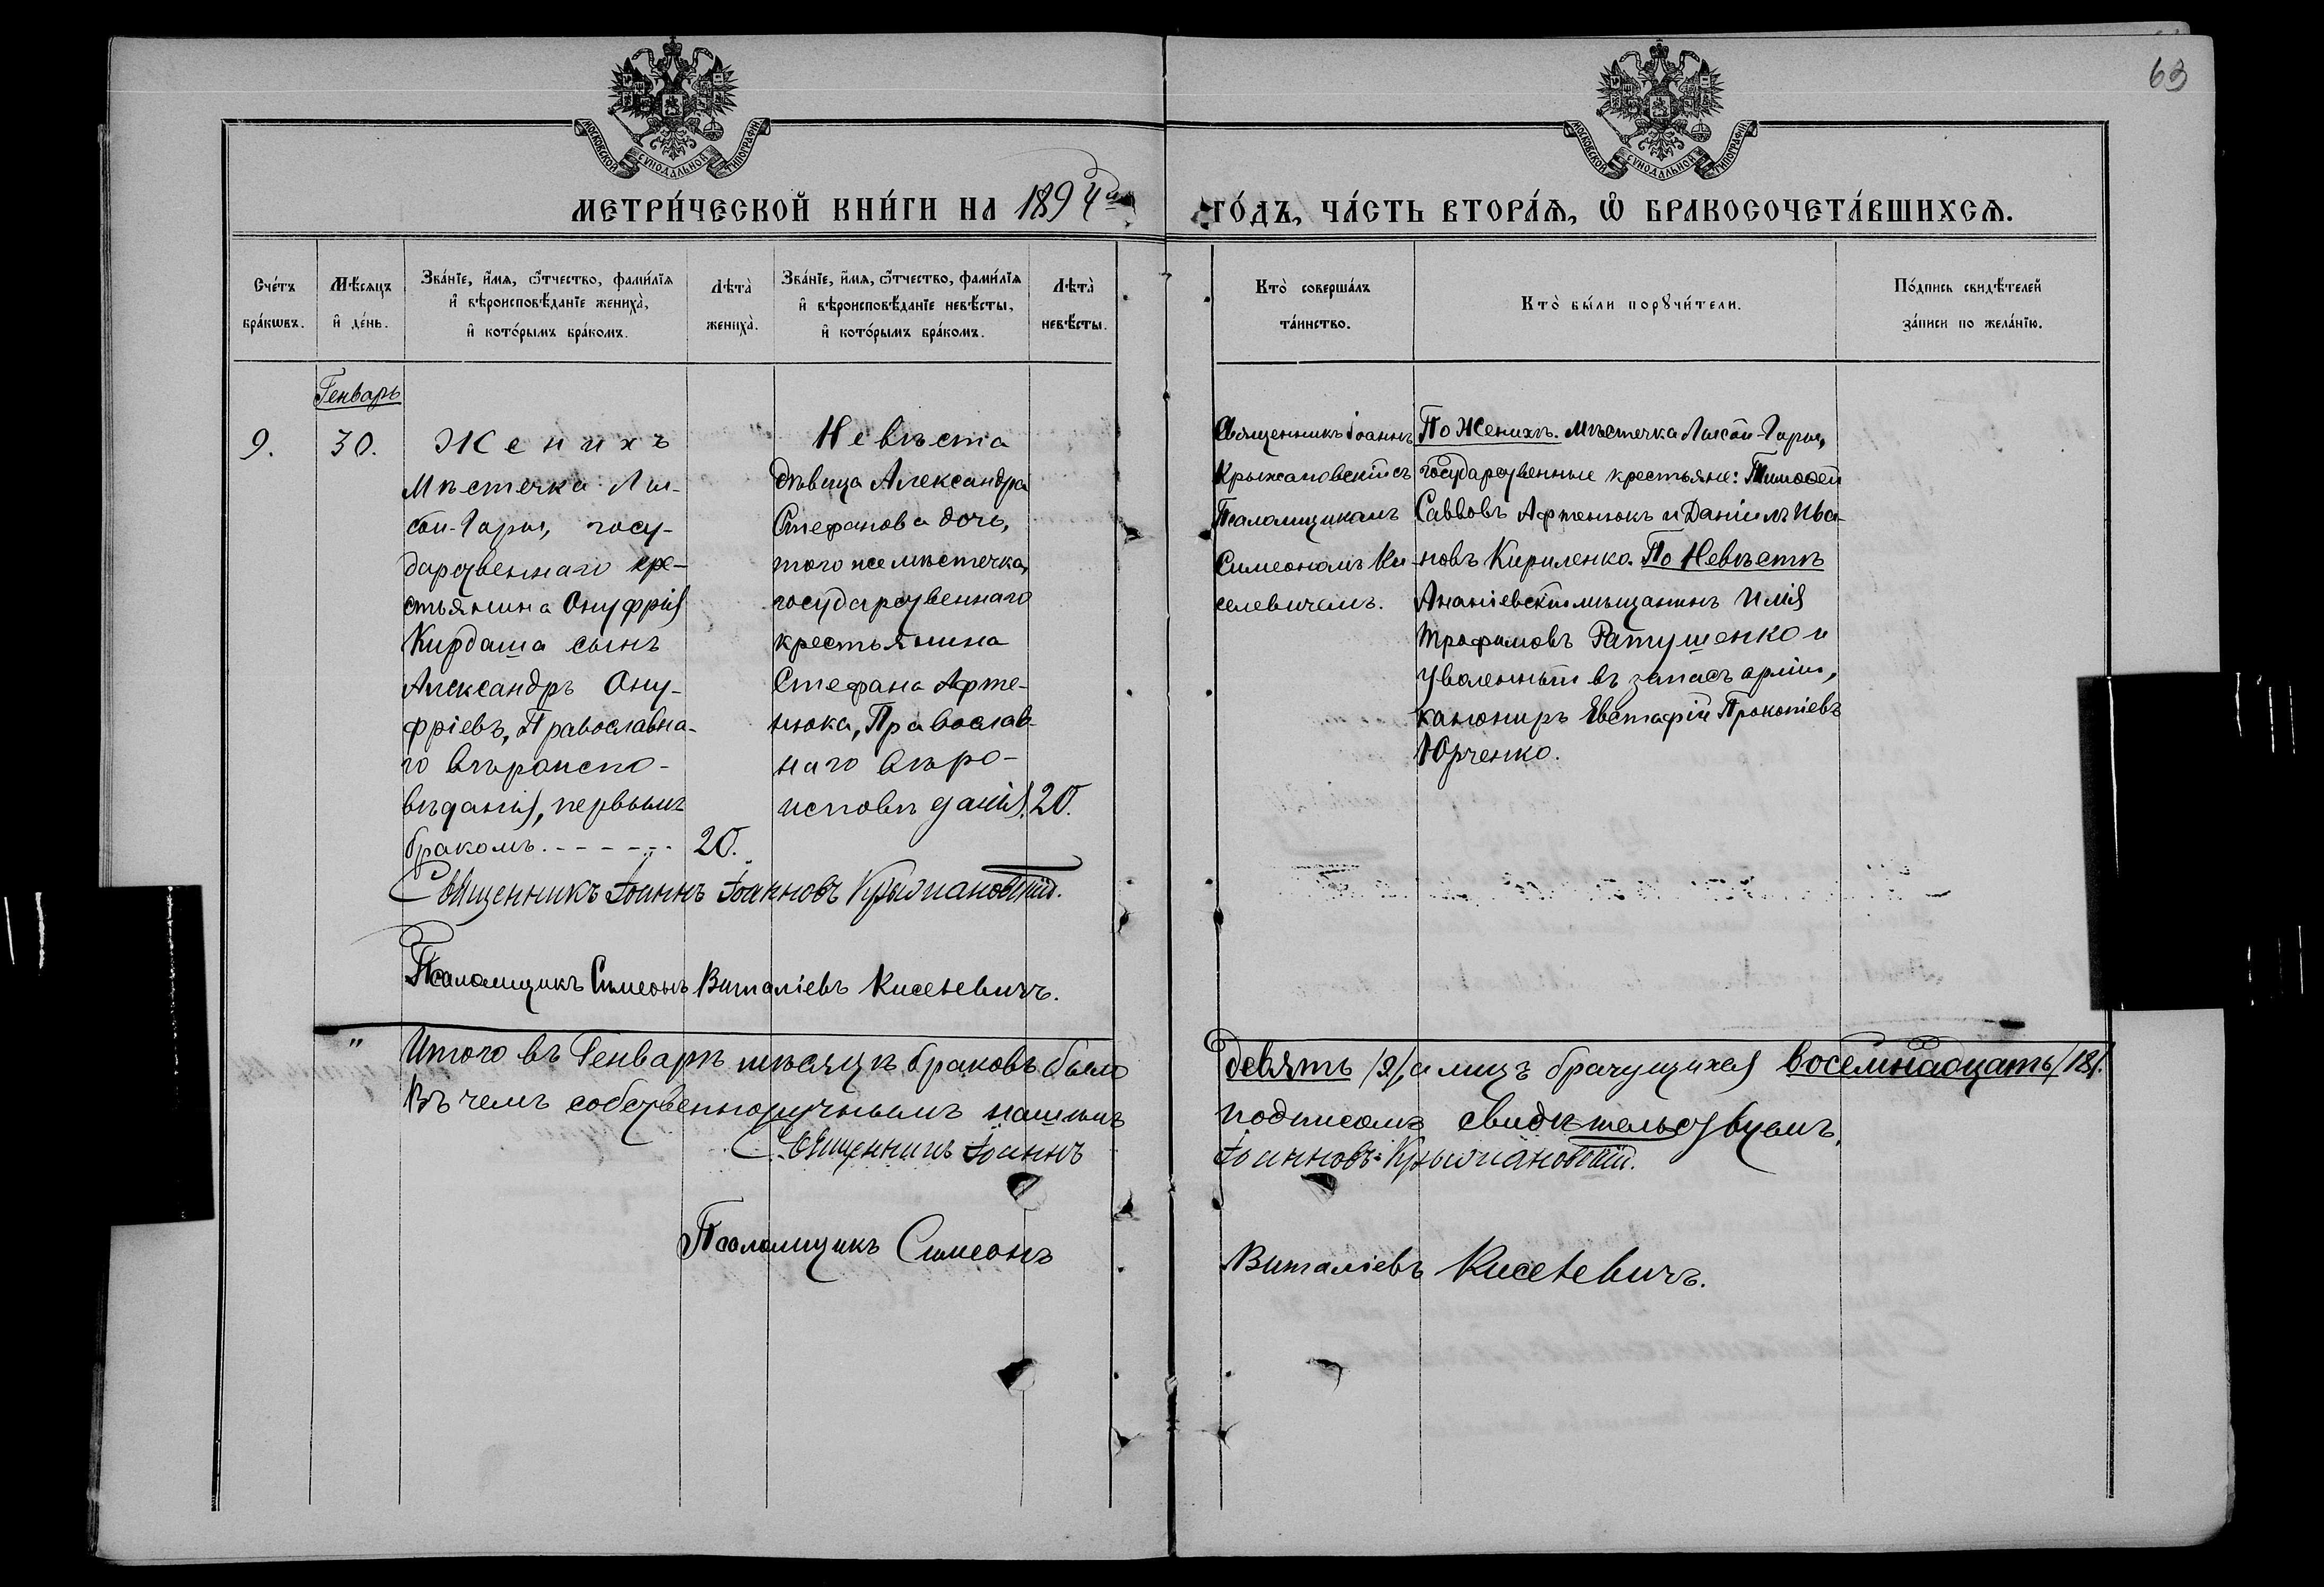 63
МОСКОВСКОЙ СУНОДАЛЬНОЙ ТИПОГРАФІИ
МОСКОВСКОЙ СУНОДАЛЬНОЙ ТИПОГРАФІИ
МЕТРИ́ЧЕСКОЙ КНИ́ГИ НА 1894й
ГО́ДЪ, ЧА́СТЬ ВТОРА́Ѧ, Ѡ҆ БРАКОСОЧЕТА́ВШИХСѦ.
Сче́тъ бра́кѡвъ.
Мѣ́сяцъ и҆ де́нь.
Зва́нїе, и҆́мѧ, ѻ҆́тчество, фами́лїѧ и҆ вѣроисповѣ́данїе жениха̀, и҆ кото́рымъ бра́комъ.
Лѣта̀ жениха̀.
Зва́нїе, и҆́мѧ, ѻ҆́тчество, фами́лїѧ и҆ вѣроисповѣ́данїе невѣ́сты, и҆ кото́рымъ бра́комъ.
Лѣта̀ невѣ́сты.
Кто̀ соверша́лъ та́инство.
Кто̀ бы́ли порꙋчи́тели.
По́дпись свидѣ́телей за́писи по жела́нїю.
Генварь
9.
30.
Женихъ
Мѣстечка Лы-
сой-Горы, госу-
дарственнаго кре-
стьянина Онуфрія
Кирдаша сынъ
Александръ Ону-
фріевъ, Православна-
го вѣроиспо-
вѣданія, первымъ
бракомъ.
20.
Невѣста
дѣвица Александра
Стефанова дочь,
того же мѣстечка,
государственнаго
крестьянина
Стефана Афте-
нюка, Православ-
наго вѣро-
исповѣданія.
20.
Священникъ Іоаннъ
Крыжановскій съ
Псаломщикомъ
Симеономъ Ки-
селевичемъ.
По Женихѣ. Мѣстечка Лысой-Горы,
государственные крестьяне: Тимофей
Саввовъ Афтенюкъ и Даніилъ Ива-
новъ Кириленко. По Невѣстѣ
Ананіевскій мѣщанинъ Илія
Трофимовъ Ратушенко и
уволенный въ запасъ арміи,
канониръ Евстафій Прокопіевъ
Юрченко.
Священникъ Іоаннъ Іоанновъ Крыжановскій.
Псаломщикъ Симеонъ Виталіевъ Киселевичъ.
" Итого въ Генварѣ мѣсяцѣ браковъ было девять /9/, а лицъ брачущихся восемнадцать /18/.
Въ чемъ собственноручнымъ нашимъ подписомъ свидѣтельствуемъ.
Священникъ Іоаннъ Іоанновъ Крыжановскій.
Псаломщикъ Симеонъ Виталіевъ Киселевичъ.